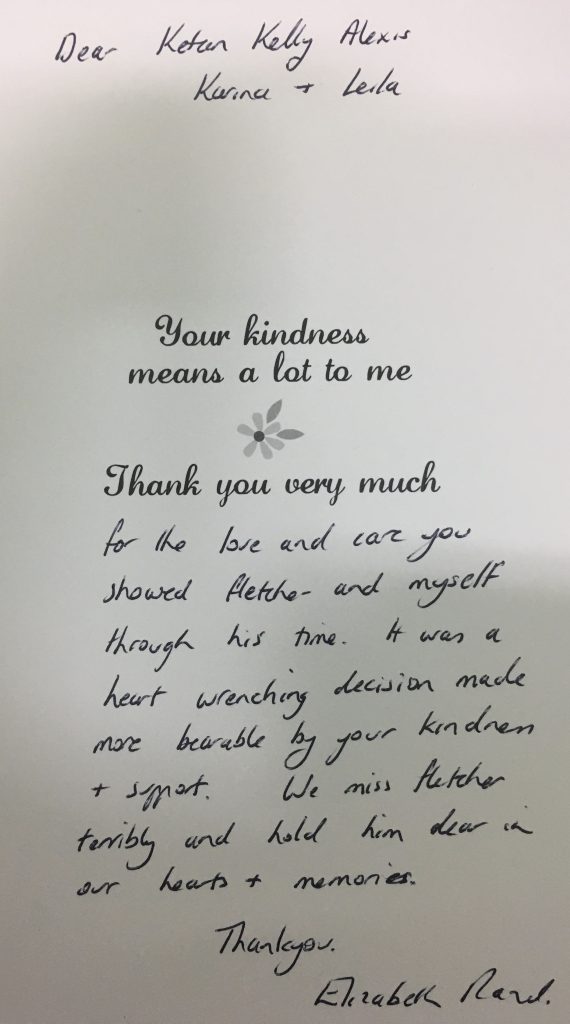 Dear Ketan Kelly Alexis
Karina + Leila
Your kindness
means a lot to me
Thank you very much
for the love and care you
showed Fletcher and myself
through his time. It was a
heart wrenching decision made
more bearable by your kindness
+ support. We miss Fletcher
terribly and hold him dear in
our hearts + memories.
Thankyou.
Elizabeth